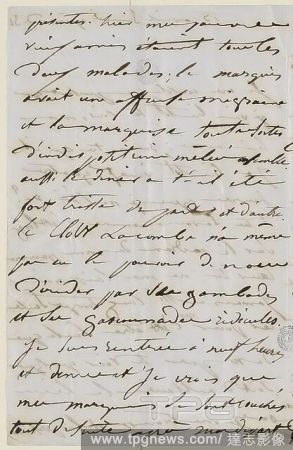 présentes. hier mes pauvres
étaient tous les
deux malades, le marquis
avait une affreuse migraine
et la marquise toutes sortes
d'indispositions mêlées
aussi le diner a été
fort triste de part et d'autre.
le Lacombe n'a même
pas eu le pouvoir de nous
dérider par ses gambades
et ses gasconnades ridicules.
Je suis rentrée à neuf heures
et demie et je crois que
mes marquis se sont couchés
tout de suite après mon départ
TPG
www.tpgnews.com/ 達志影像